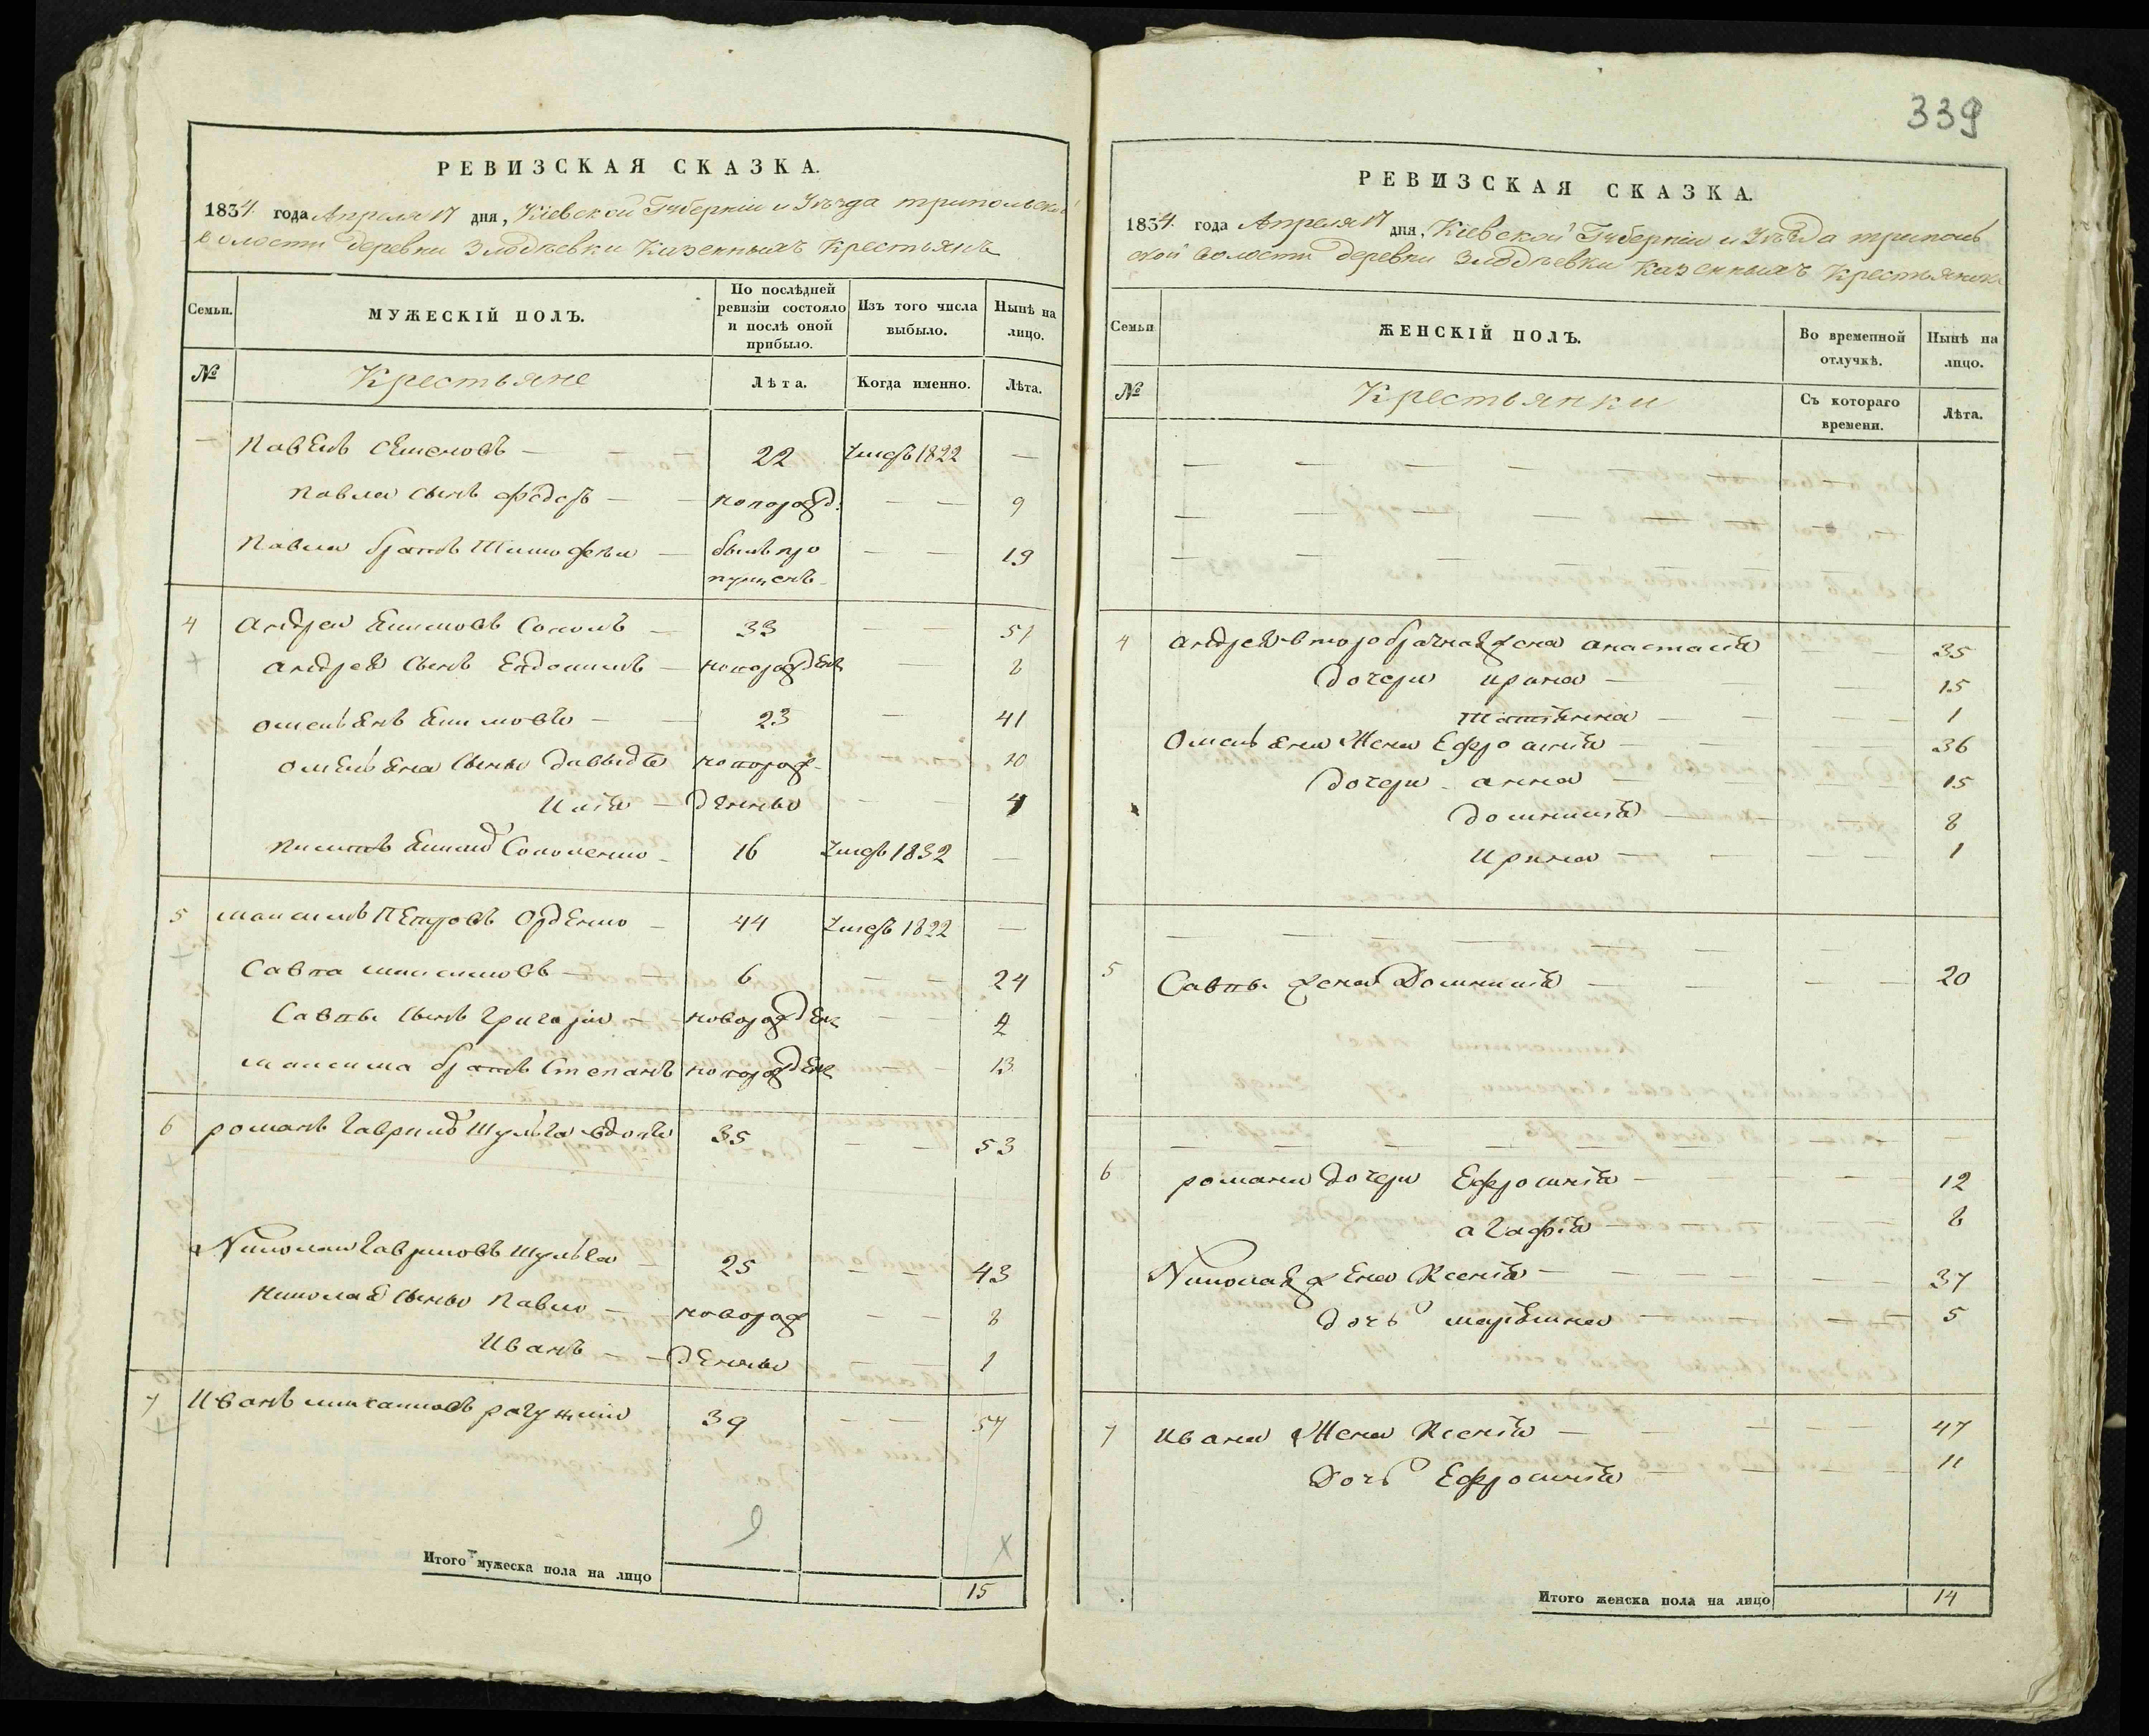 РЕВИЗСКАЯ СКАЗКА.
1834 года Апреля 17 дня, Кіевской Губерніи и Уѣзда трипольской
волости деревни Злодѣевки Казенныхъ Крестьянъ
Семьи.
МУЖЕСКІЙ ПОЛЪ.
По послѣдней
ревизіи состояло
и послѣ оной
прибыло.
Изъ того числа
выбыло.
Нынѣ на
лицо.
№
Крестьяне
Лѣта.
Когда именно.
Лѣта.
Павелъ Семеновъ — 22 Умеръ 1822 —
Павла сынъ Федоръ — новорожд. — — 9
Павла братъ Тимофей — былъ про — — 19
пущенъ
4 Андрей Екимовъ Соколъ — 33 — — 51
Андрея сынъ Евдокимъ — новорожден — 8
Омельянъ Екимовъ — 23 — 41
Омельяна сыны Давыдъ новорож — 10
Илія — денные — — 4
Екимов 16 Умеръ 1832 —
5 Максимъ Петровъ 44 Умеръ 1822 —
Савка Максимовъ — 6 — — 24
Савки сынъ Григорій — новорожден — — 2
Максима братъ Степанъ новорожден — 13
6 Романъ Гаврилов Шульга вдовъ 35 — — 53
Николай Гавриловъ Шульга — 25 — — 43
Николая сыны Павло — новорож — — 8
Иванъ — — денные — — 1
7 Иванъ Михайловъ 39 — — 54
Итого мужеска пола на лицо
15
339
РЕВИЗСКАЯ СКАЗКА.
1834 года Апреля 17 дня, Кіевской Губерніи и Уѣзда триполь
ской волости деревни Злодѣевки Казенныхъ Крестьянокъ
Семьи
ЖЕНСКІЙ ПОЛЪ.
Во временной
отлучкѣ.
Нынѣ на
лицо.
№
Крестьянки
Съ котораго
времени.
Лѣта.
4 Андрея второбрачная жена Анастасія — — 35
дочери Ирина — — 15
Татіянна — — — 1
Омельяна жена Ефросинія — — — 36
дочери Анна — — — 15
Домникія — — — 8
Ирина — — — — 1
5 Савки жена Домникія — — — 20
6 Романа дочери Ефросинія — — — 12
Агафія — — — 8
Николая жена Ксенія — — — 37
дочь Марѣянна — — — 5
7 Ивана жена Ксенія — — — 47
Дочь Ефросинія — — — 11
Итого женска пола на лицо
14